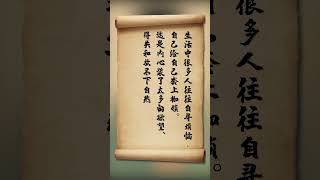 生活中很多人往往自寻烦恼
自己给自己套上枷锁。
这是内心装了太多的欲望、
得失和放不下自然